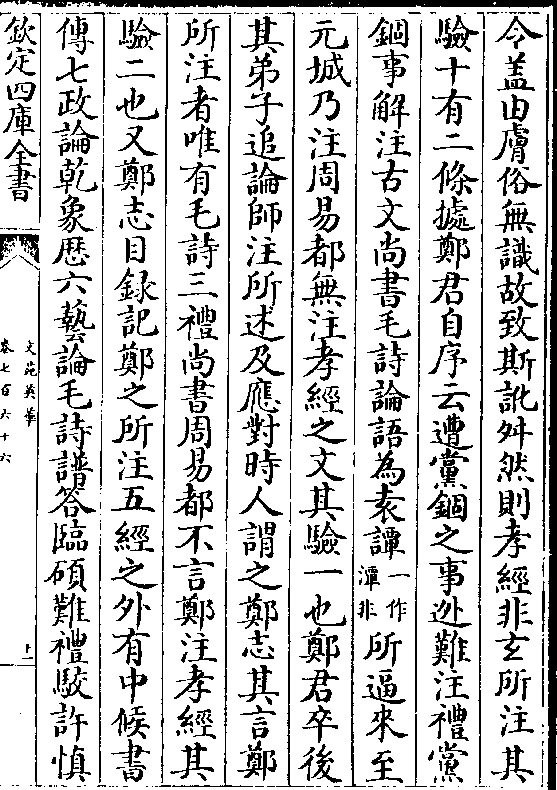 今盖由膚俗無識故致斯訛舛然則孝經非玄所注其
驗十有二條據鄭君自序云遭黨錮之事逃難注禮黨
錮事解注古文尚書毛詩論語為袁譚一作潭非所逼來至
元城乃注周易都無注孝經之文其驗一也鄭君卒後
其弟子追論師注所述及應對時人謂之鄭志其言鄭
所注者唯有毛詩三禮尚書周易都不言鄭注孝經其
驗二也又鄭志目録記鄭之所注五經之外有中候書
傳七政論乾象厯六藝論毛詩譜答臨碩難禮駁許慎
欽定四庫全書
文苑英華
卷七百六十六
十二